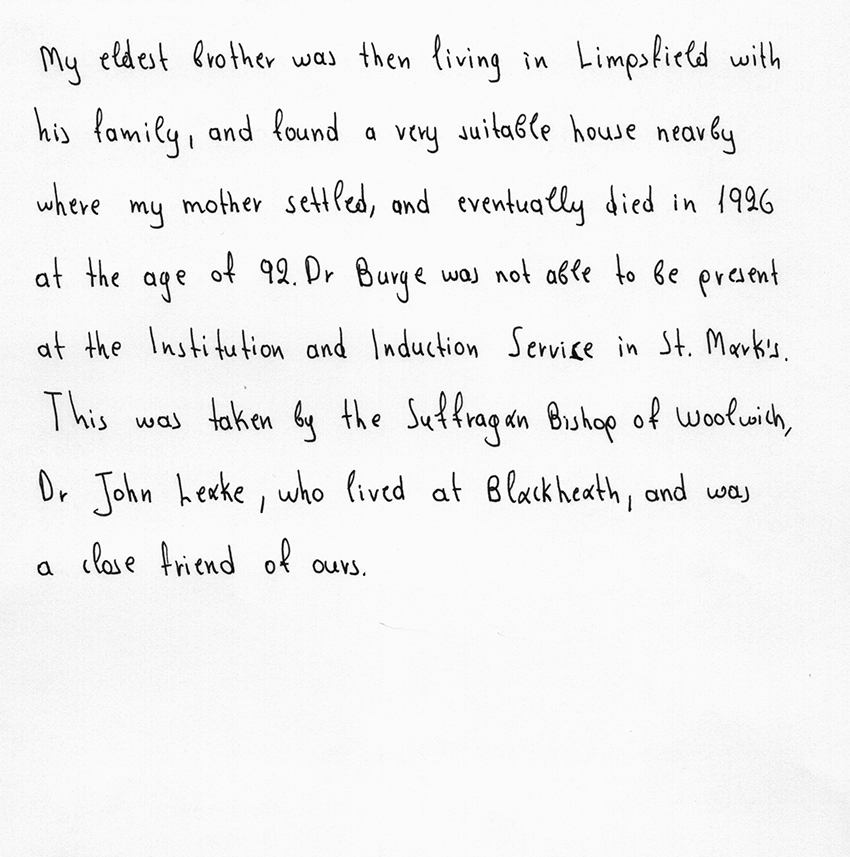 My eldest brother was then living in Limpsfield with
his family, and found a very suitable house nearby
where my mother settled, and eventually died in 1926
at the age of 92. Dr Burge was not able to be present
at the Institution and Induction Service in St. Mark's.
This was taken by the Suffragan Bishop of Woolwich,
Dr John Leake, who lived at Blackheath, and was
a close friend of ours.